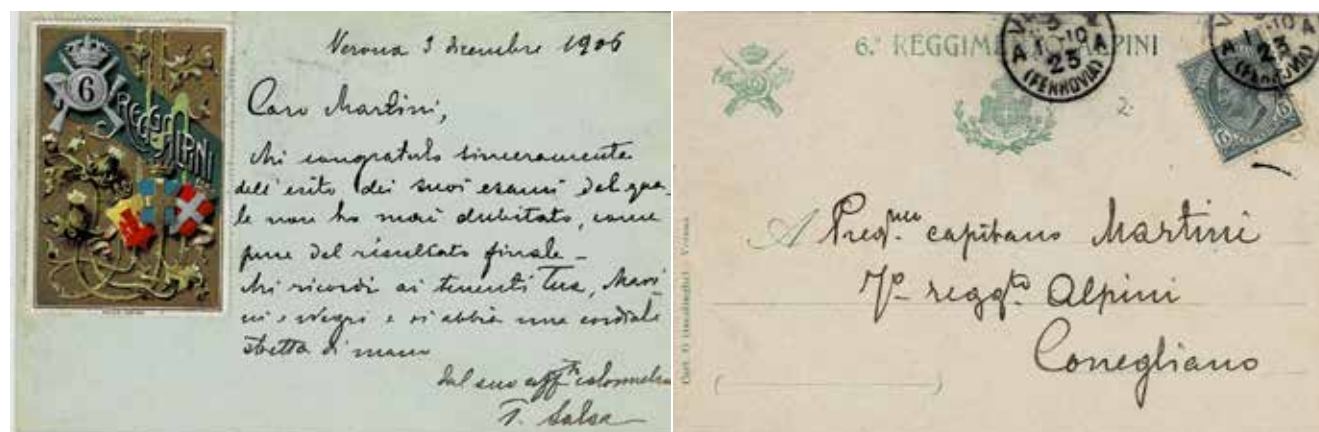 6
REGG. ALPINI
Verona 3 dicembre 1906
Caro Martini,
Mi congratulo sinceramente
dell'esito dei suoi esami del qua-
le non ho mai dubitato, come
pure del risultato finale –
Mi ricordi ai tenenti
e si abbia una cordiale
stretta di mano
dal suo aff. colonnello
T. Salsa
6.º REGGIMENTO ALPINI
23
(FERROVIA)
23
(FERROVIA)
2
A Preg.mo capitano Martini
7º regg.to Alpini
Conegliano